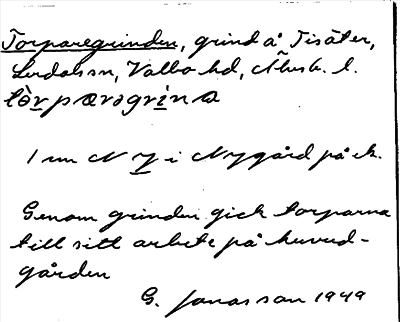 Torparegrinden, grind å Tisäter,
Lerdalssn, Valbo hd, Älvsb. l.
tòrpæragrìna
1 mm N Y i Nygård på ek.
Genom grinden gick torparna
till sitt arbete på huvud-
gården
G. Jonasson 1949